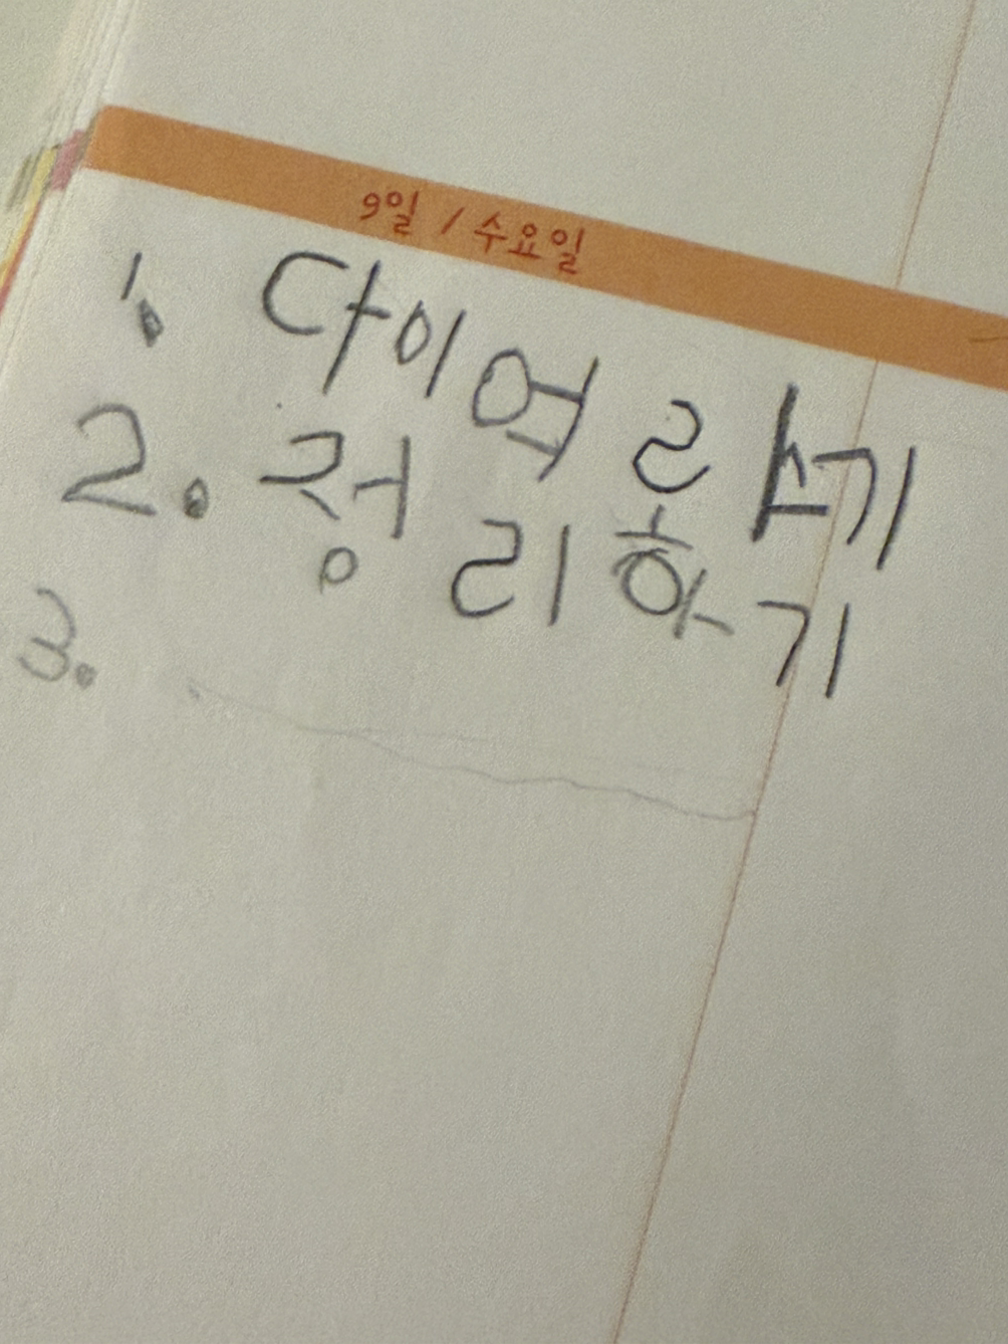 9일 / 수요일
1. 다이여 기
2. 정리하기
3.